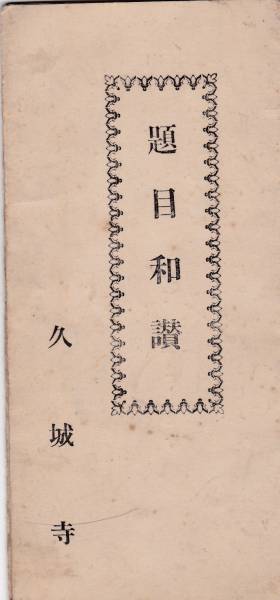 題目和讃
久城寺